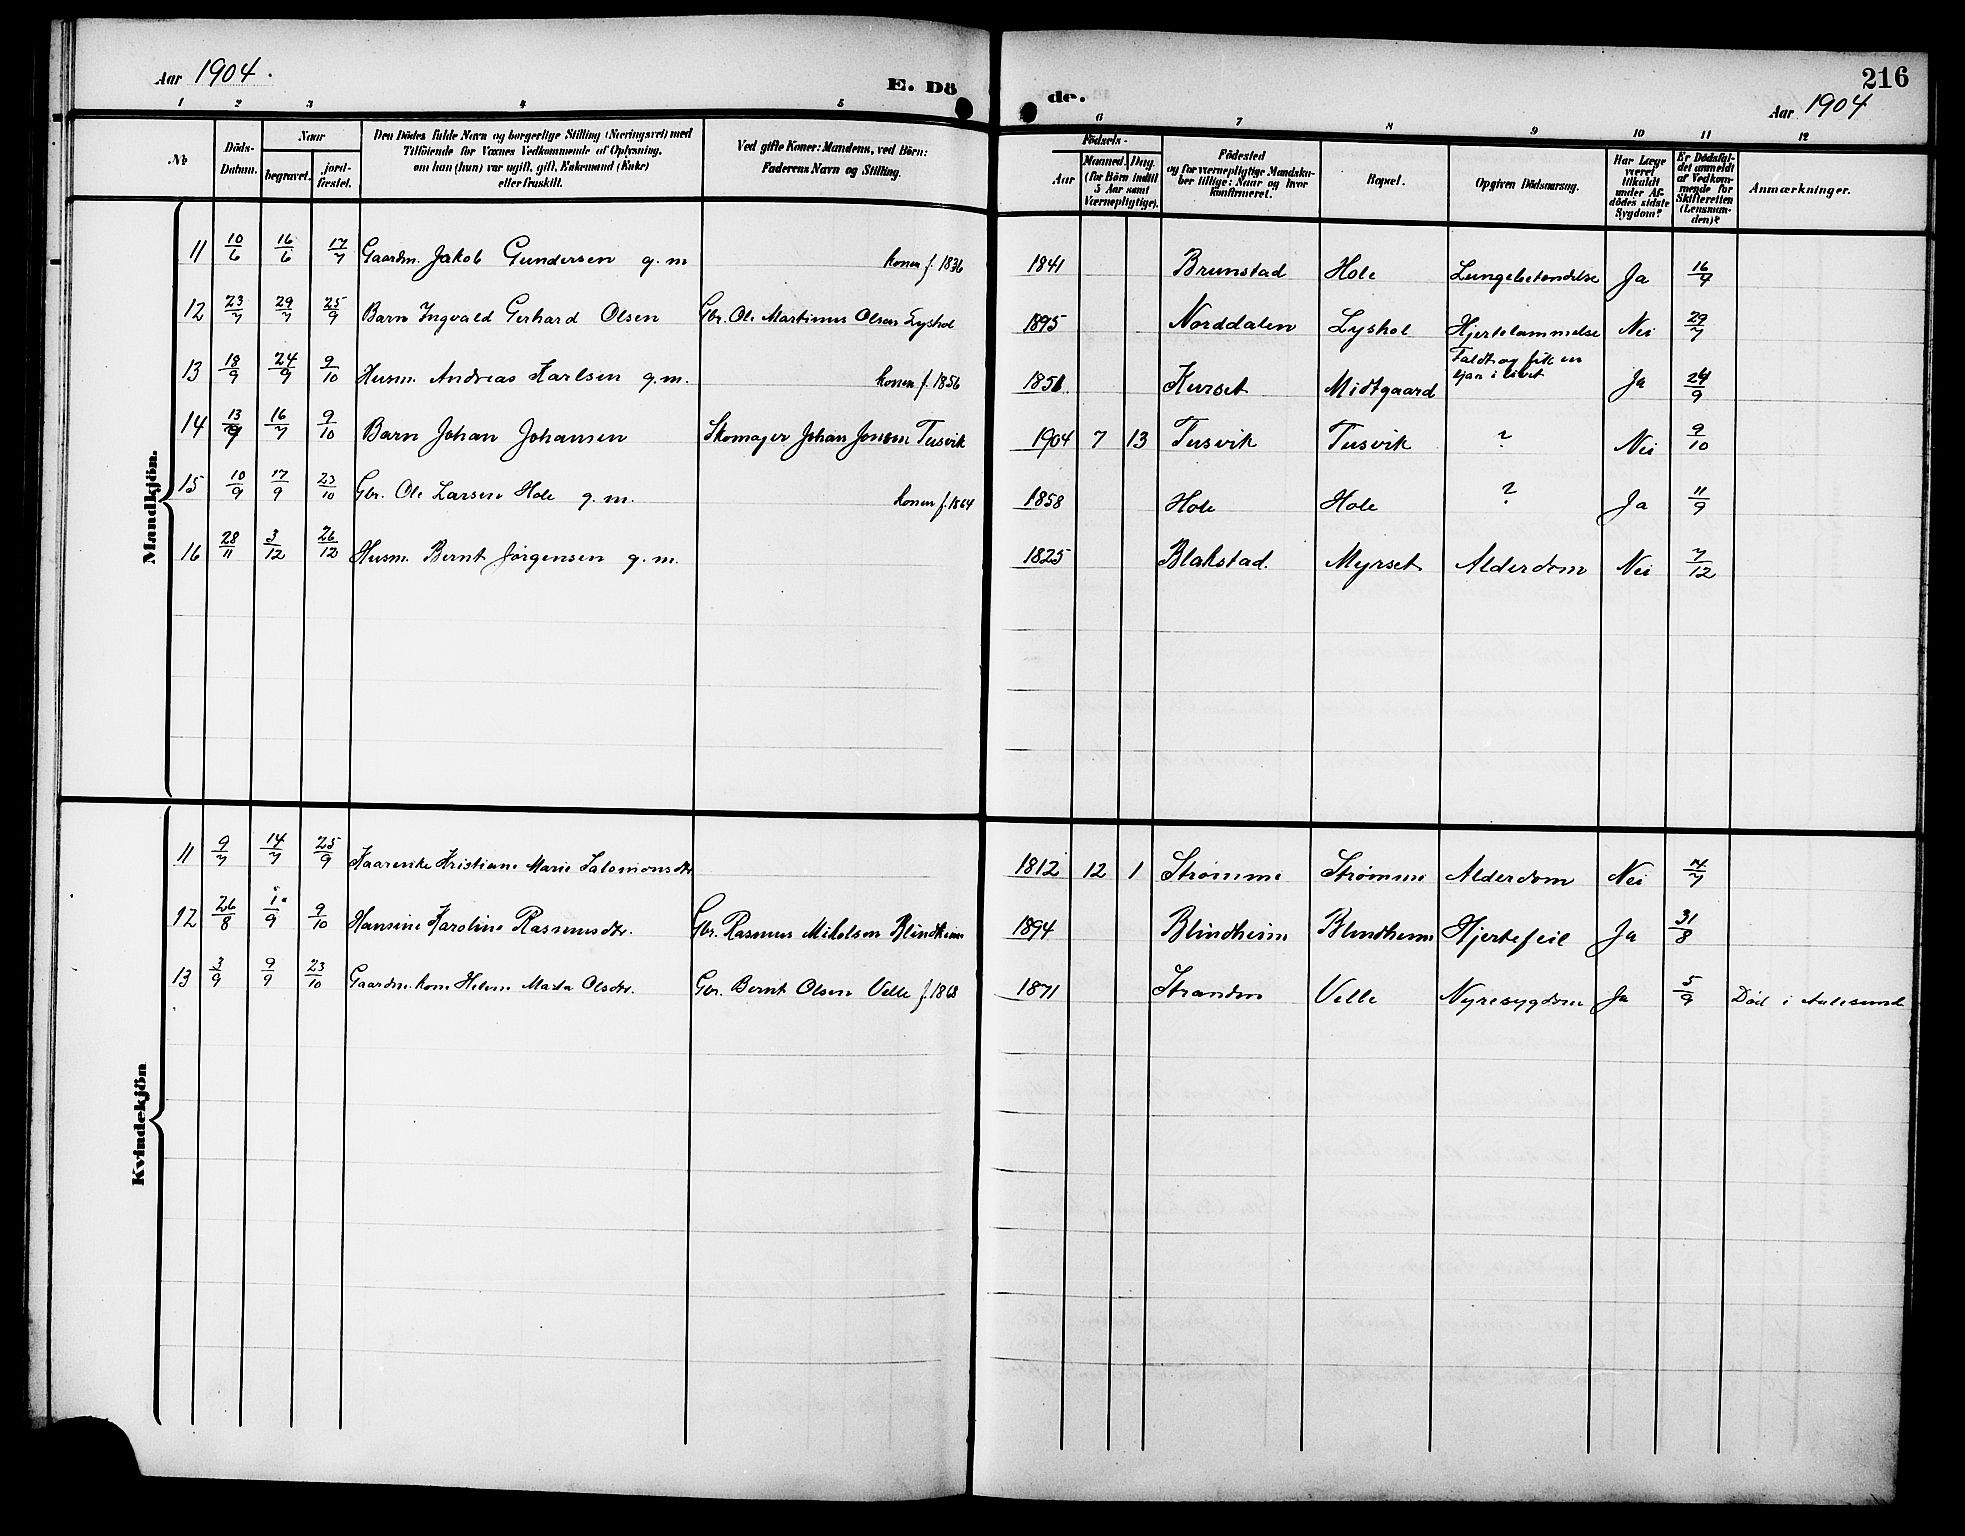 Aar 1904.
E. Dö
de.
216
Aar 1904
1 2 3 4 5 6 7 8 9 10 11 12
No
Döds-
Datum.
Naar
begravet.
jord-
fæstet.
Den Dödes fulde Navn og borgerlige Stilling (Næringsvei) med
Tilföiende for Voxnes Vedkommende af Oplysning,
om han (hun) var ugift, gift, Enkemand (Enke)
eller fraskilt.
Ved gifte Koner: Mandens, ved Börn:
Faderens Navn og Stilling.
Födsels-
Aar
Maaned. Dag.
(for Börn indtil
5 Aar samt
Værnepligtige).
Födested
og for værnepligtige Mandska-
ber tillige: Naar og hvor
konfirmeret.
Bopæl.
Opgiven Dödsaarsag.
Har Læge
været
tilkaldt
under Af-
dödes sidste
Sygdom?
Er Dödsfal-
det anmeldt
af Vedkom-
mende for
Skifteretten
(Lensman-
den)?
Anmærkninger.
Mandkjön.
11 10/6 16/6 17/7 Gaardm. Jakob Gundersen g. m. konen f. 1836 1841 Brunstad Hole Lungebetændelse Ja 16/9
12 23/7 29/7 25/9 Barn Ingvald Gerhard Olsen Gbr. Ole Martinus Olsen Lyshol 1895 Norddalen Lyshol Hjertelammelse Nei 29/7
13 18/9 24/9 9/10 Husm. Andreas Karlsen g. m. konen f. 1856 1851 Kurset Midtgaard Faldt og fik en
i livet Ja 24/9
14 13/7 16/7 9/10 Barn Johan Johansen Skomager Johan Jonsen Tusvik 1904 7 13 Tusvik Tusvik ? Nei 9/10
15 10/9 17/9 23/10 Gbr. Ole Larsen Hole g. m. konen f. 1864 1858 Hole Hole ? Ja 11/9
16 28/11 3/12 26/12 Husm. Bernt Jørgensen g. m. 1825 Blakstad. Myrset Alderdom Nei 7/12
Kvindekjön
11 9/7 14/7 25/9 Kaarenke Kristiane Marie Salomonsdtr 1812 12 1 Strømme Strømme Alderdom Nei 14/7
12 26/8 1/9 9/10 Hansine Karoline Rasmusdtr. Gbr. Rasmus Mikelsen Blindheim 1894 Blindheim Blindheim Hjertefeil Ja 31/8
13 3/9 9/9 23/10 Gaardm. kone Helene Marta Olsdtr. Gbr. Bernt Olsen Velle f. 1868 1871 Stranden Velle Nyresygdom Ja 5/9 Død i Aalesund